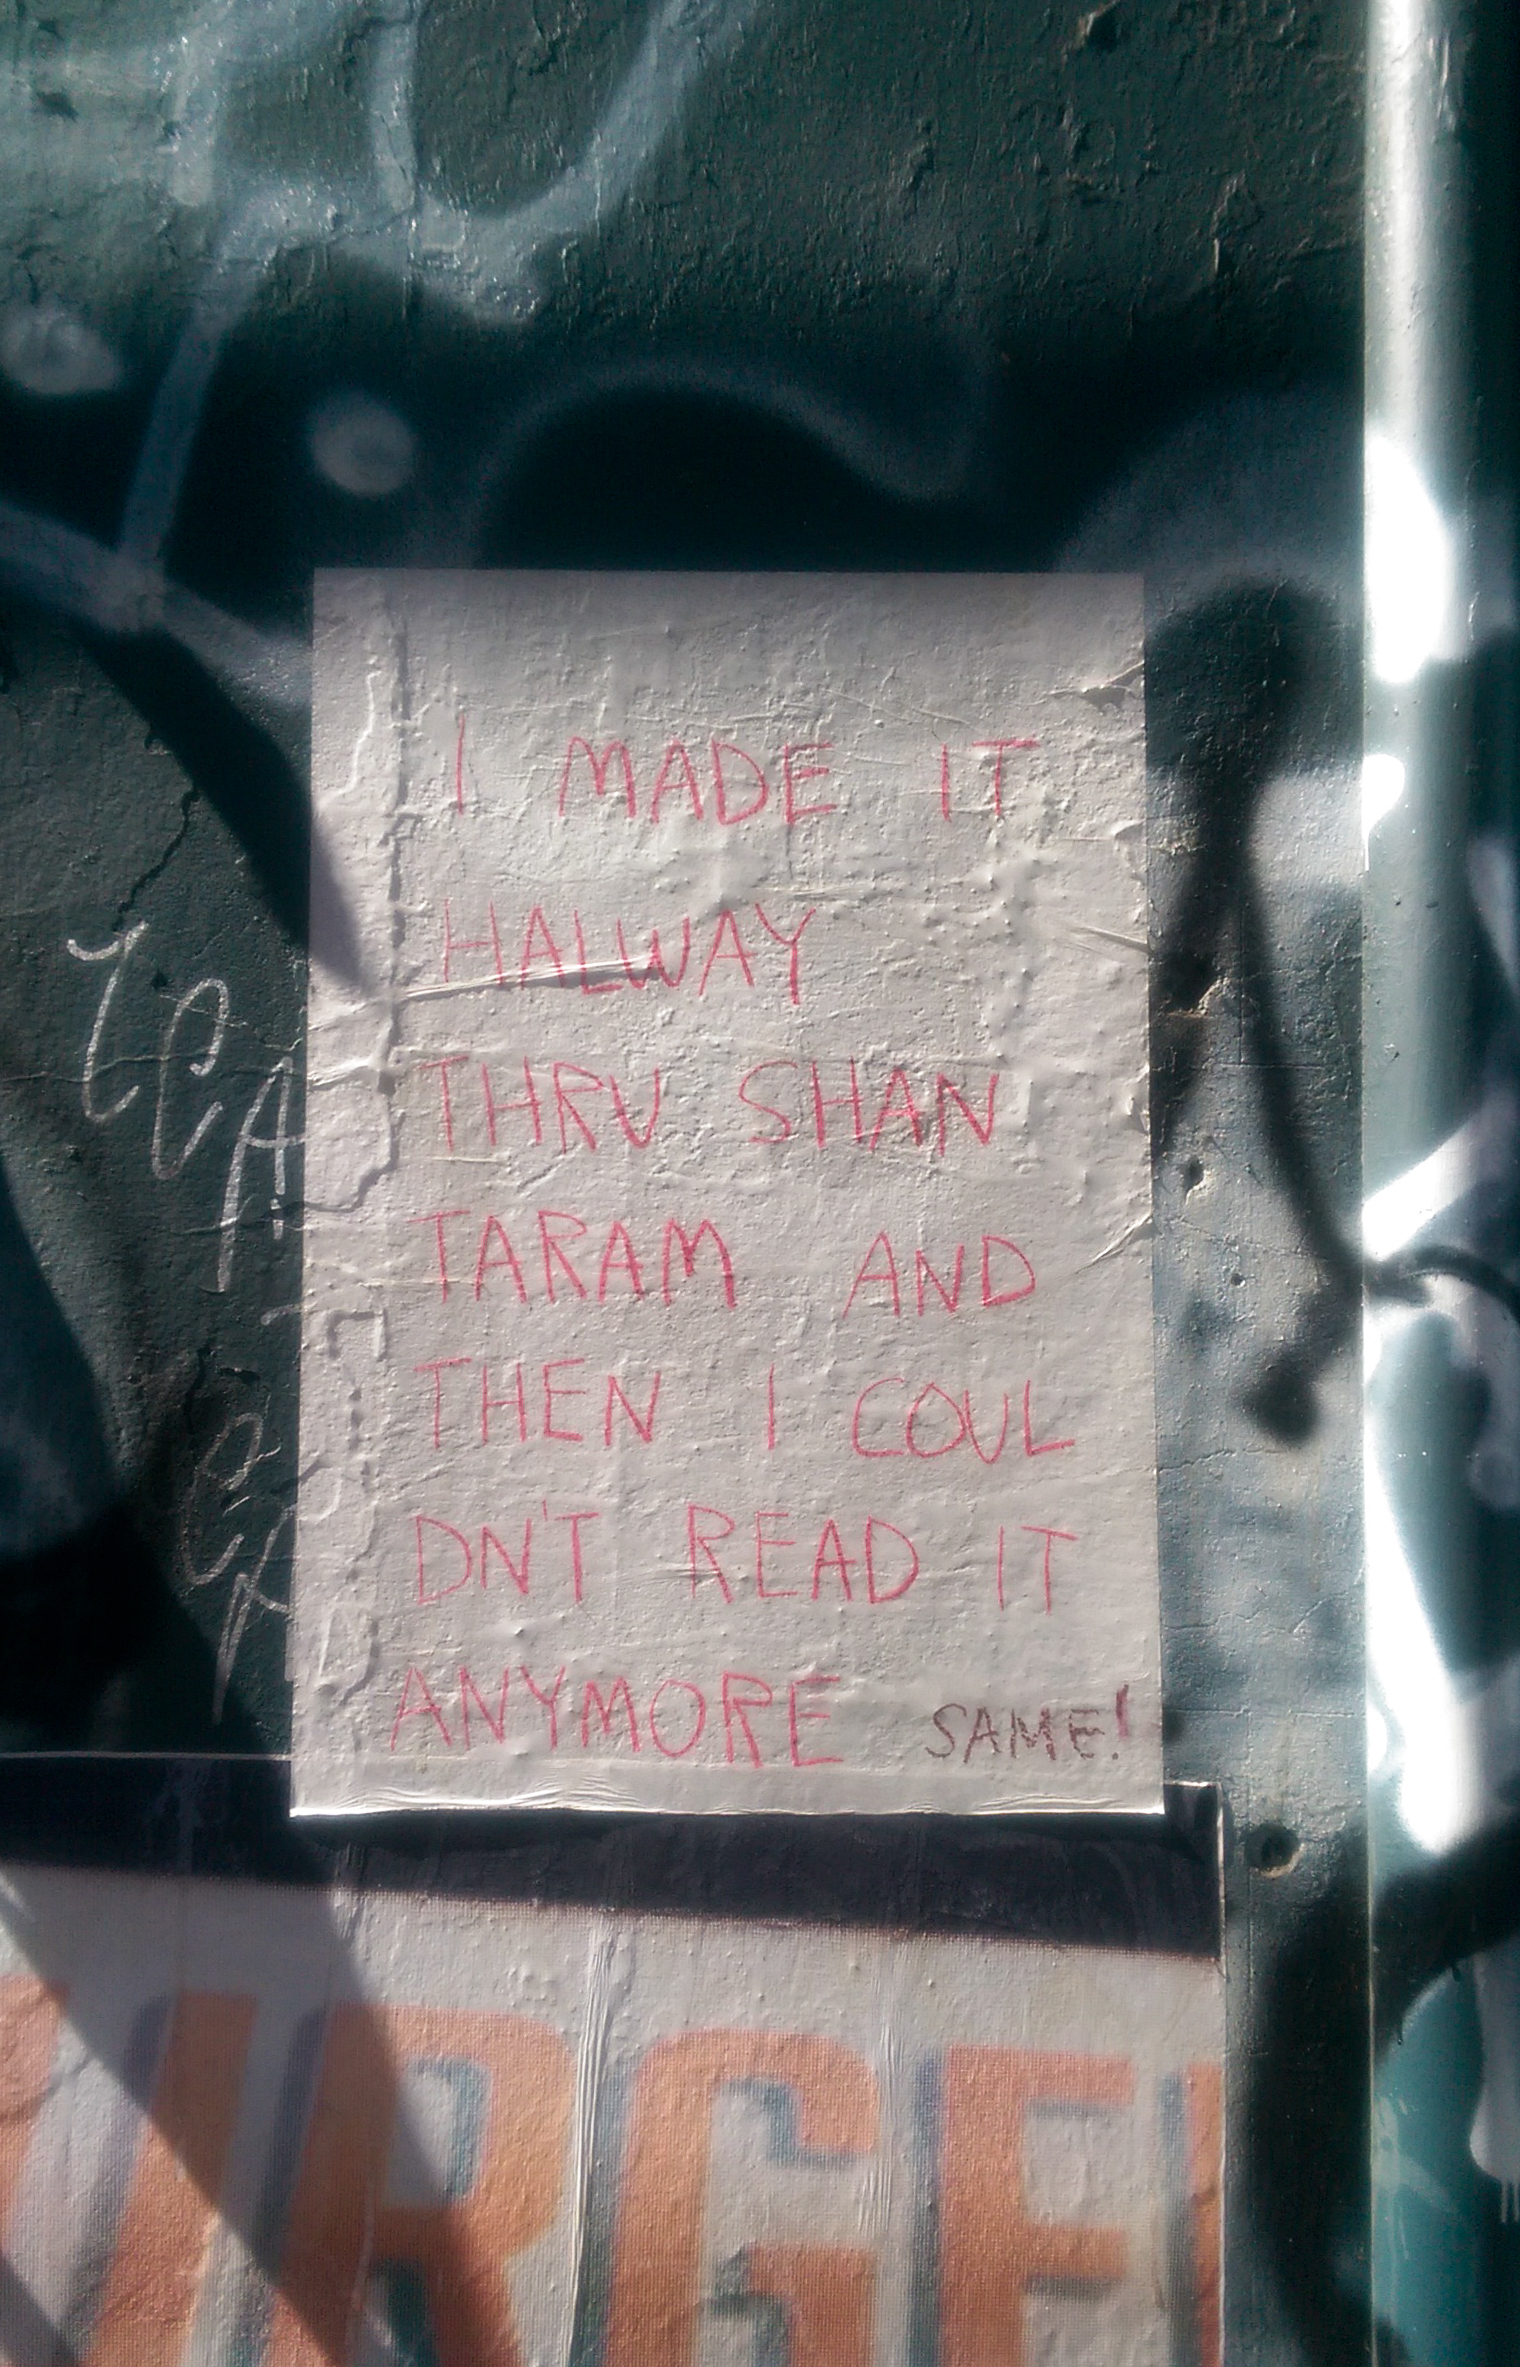 I MADE IT
HALWAY
THRU SHAN
TARAM AND
THEN I COUL
DN'T READ IT
ANYMORE SAME!